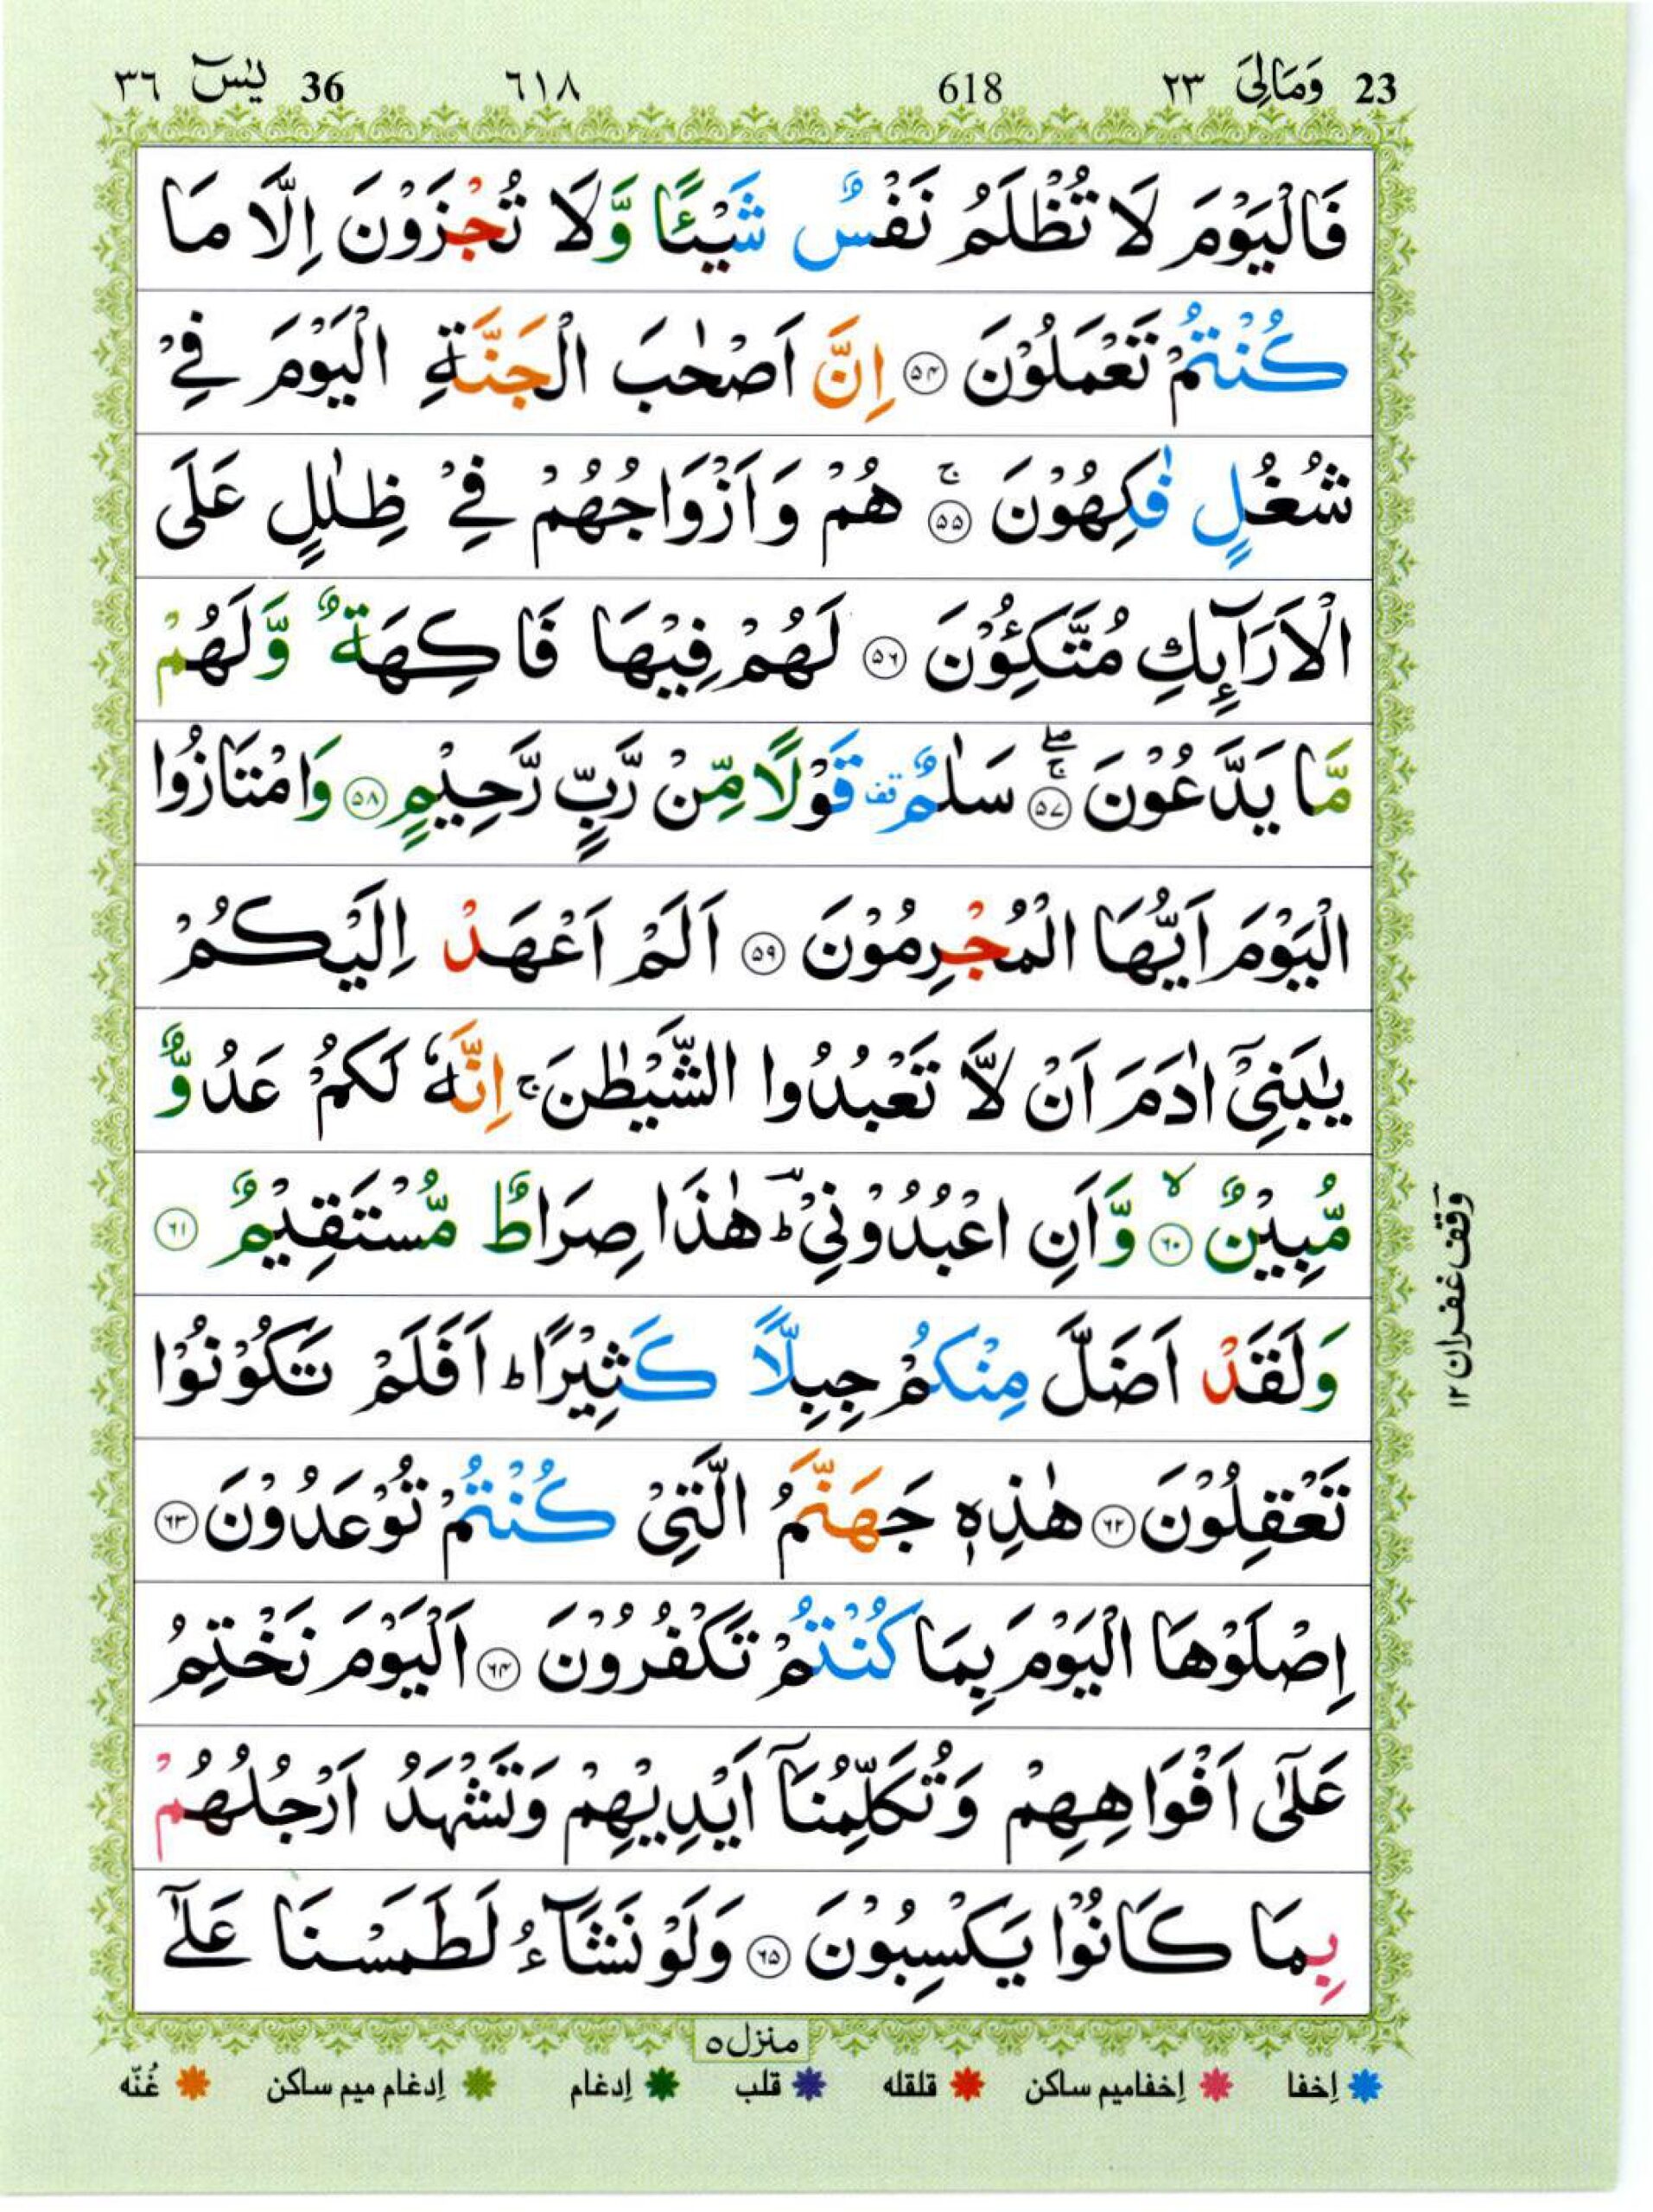 23 وَمَالِیَ ٢٣ 618 ٦١٨ 36 یٰسٓ ٣٦
فَالْیَوْمَ لَا تُظْلَمُ نَفْسٌ شَیْـًٔا وَّلَا تُجْزَوْنَ اِلَّا مَا
كُنْتُمْ تَعْمَلُوْنَ ﴿۵۴﴾ اِنَّ اَصْحٰبَ الْجَنَّةِ الْیَوْمَ فِیْ
شُغُلٍ فٰكِهُوْنَ ﴿۵۵﴾ۚ هُمْ وَاَزْوَاجُهُمْ فِیْ ظِلٰلٍ عَلَی
الْاَرَآىِٕكِ مُتَّكِـُٔوْنَ ﴿۵۶﴾ لَهُمْ فِیْهَا فَاكِهَةٌ وَّلَهُمْ
مَّا یَدَّعُوْنَ ﴿۵۷﴾ۚۖ سَلٰمٌ قف قَوْلًا مِّنْ رَّبٍّ رَّحِیْمٍ ﴿۵۸﴾ وَامْتَازُوا
الْیَوْمَ اَیُّهَا الْمُجْرِمُوْنَ ﴿۵۹﴾ اَلَمْ اَعْهَدْ اِلَیْكُمْ
یٰبَنِیْۤ اٰدَمَ اَنْ لَّا تَعْبُدُوا الشَّیْطٰنَ ۚ اِنَّهٗ لَكُمْ عَدُوٌّ
مُّبِیْنٌ ﴿۶۰﴾ۙ وَّاَنِ اعْبُدُوْنِیْ ؕؔ هٰذَا صِرَاطٌ مُّسْتَقِیْمٌ ﴿۶۱﴾
وَلَقَدْ اَضَلَّ مِنْكُمْ جِبِلًّا كَثِیْرًا ؕ اَفَلَمْ تَكُوْنُوْا
تَعْقِلُوْنَ ﴿۶۲﴾ هٰذِهٖ جَهَنَّمُ الَّتِیْ كُنْتُمْ تُوْعَدُوْنَ ﴿۶۳﴾
اِصْلَوْهَا الْیَوْمَ بِمَا كُنْتُمْ تَكْفُرُوْنَ ﴿۶۴﴾ اَلْیَوْمَ نَخْتِمُ
عَلٰۤی اَفْوَاهِهِمْ وَتُكَلِّمُنَاۤ اَیْدِیْهِمْ وَتَشْهَدُ اَرْجُلُهُمْ
بِمَا كَانُوْا یَكْسِبُوْنَ ﴿۶۵﴾ وَلَوْ نَشَآءُ لَطَمَسْنَا عَلٰۤی
وَقف غفران ١٢
منزل ۵
اِخفا اِخفامیم ساکن قلقله قلب اِدغام اِدغام میم ساکن غُنّه